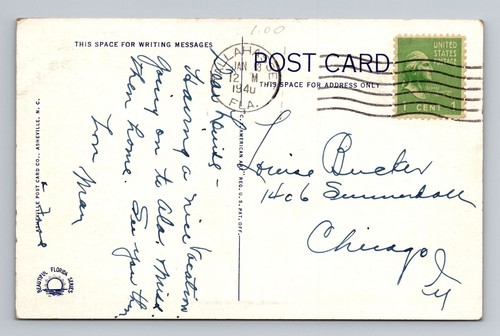 1.00
THIS SPACE FOR WRITING MESSAGES
POST CARD
THIS SPACE FOR ADDRESS ONLY
JAN 3
12 M
1940
FLA.
UNITED
STATES
POSTAGE
1 CENT 1
Dear Louise -
Having a nice vacation
going on to Ala. & Miss.
then home. See you then
Lou Mac
Louise Bucker
1406 Summerdale
Chicago
Ill
ASHEVILLE POST CARD CO., ASHEVILLE, N. C.
C. AMERICAN ART REG. U. S. PAT. OFF.
BEAUTIFUL FLORIDA SERIES